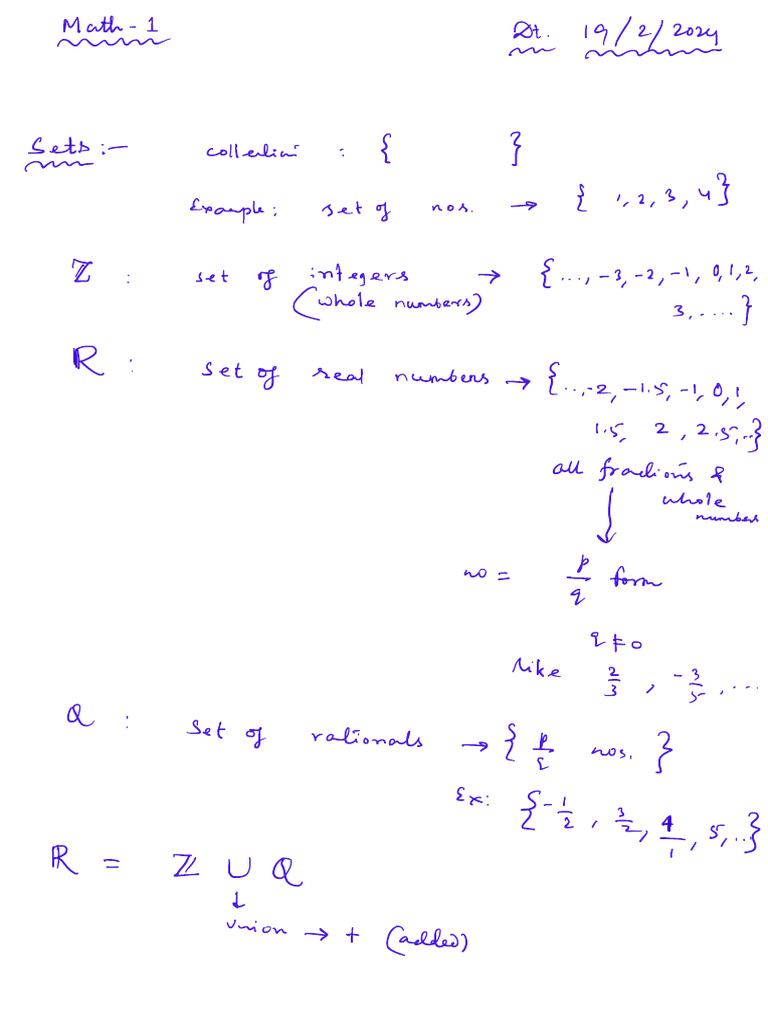 Math-1 Dt. 19/2/2024
Sets:- collection : { }
Example: set of nos. → { 1, 2, 3, 4 }
ℤ : set of integers → { ..., -3, -2, -1, 0, 1, 2,
(whole numbers) 3, .... }
ℝ : set of real numbers → { ..., -2, -1.5, -1, 0, 1,
1.5, 2, 2.5, .. }
all fractions &
whole
numbers
↓
no = p/q form
q ≠ 0
like 2/3, -3/5, ...
Q : set of rationals → { p/q nos. }
Ex: { -1/2, 3/2, 4/1, 5, .. }
ℝ = ℤ ∪ Q
↓
union → + (added)